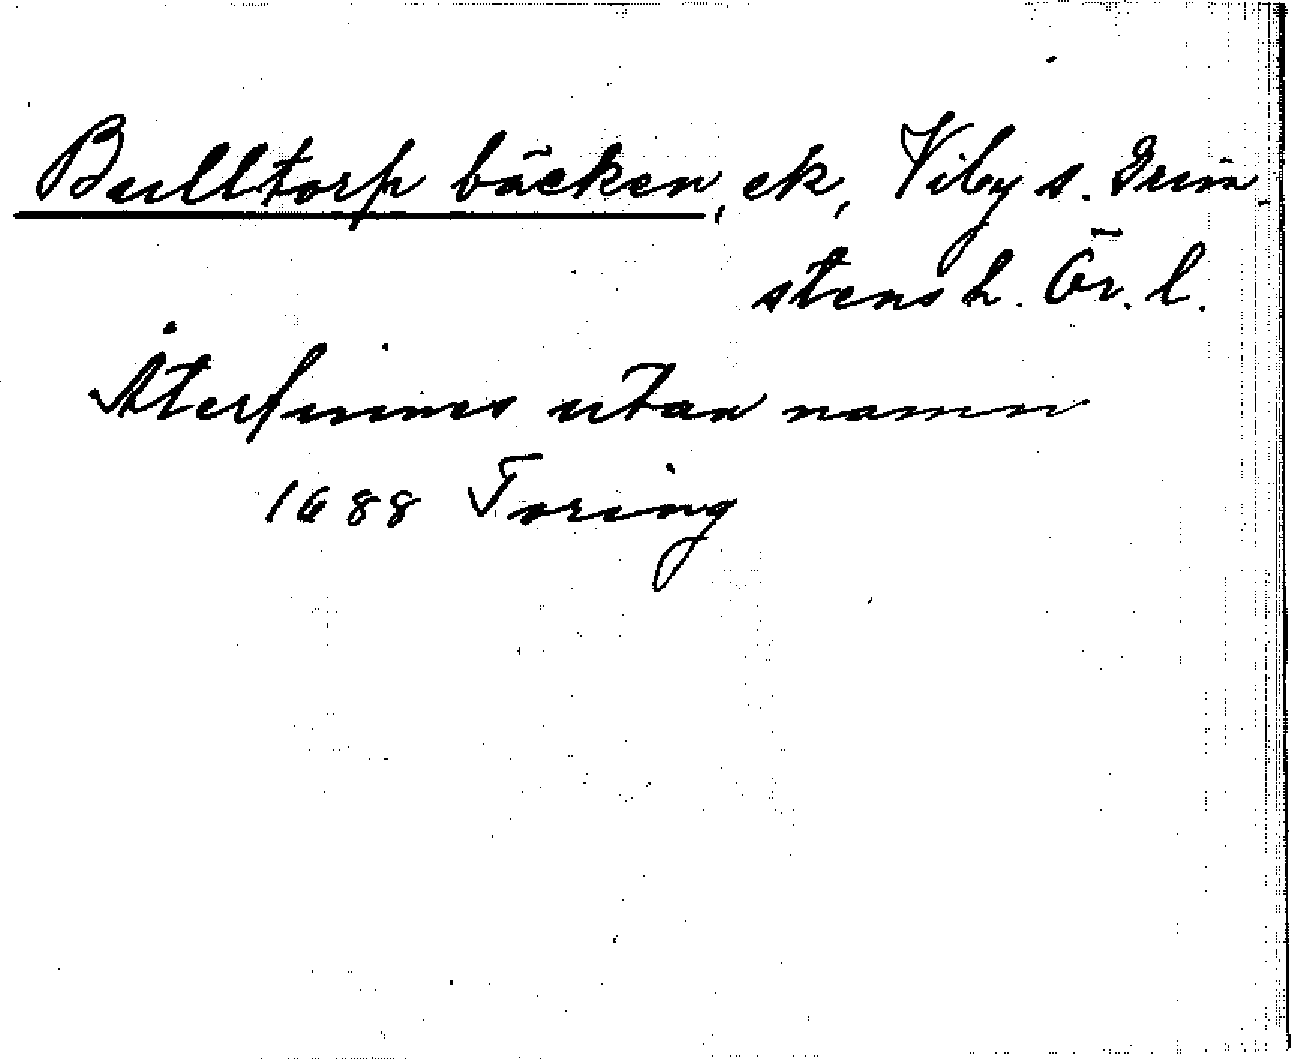 Bulltorp bäcken, ek, Viby s. Grim
stens h. Ör. l.
Återfinnes utan namn
1688 Toring